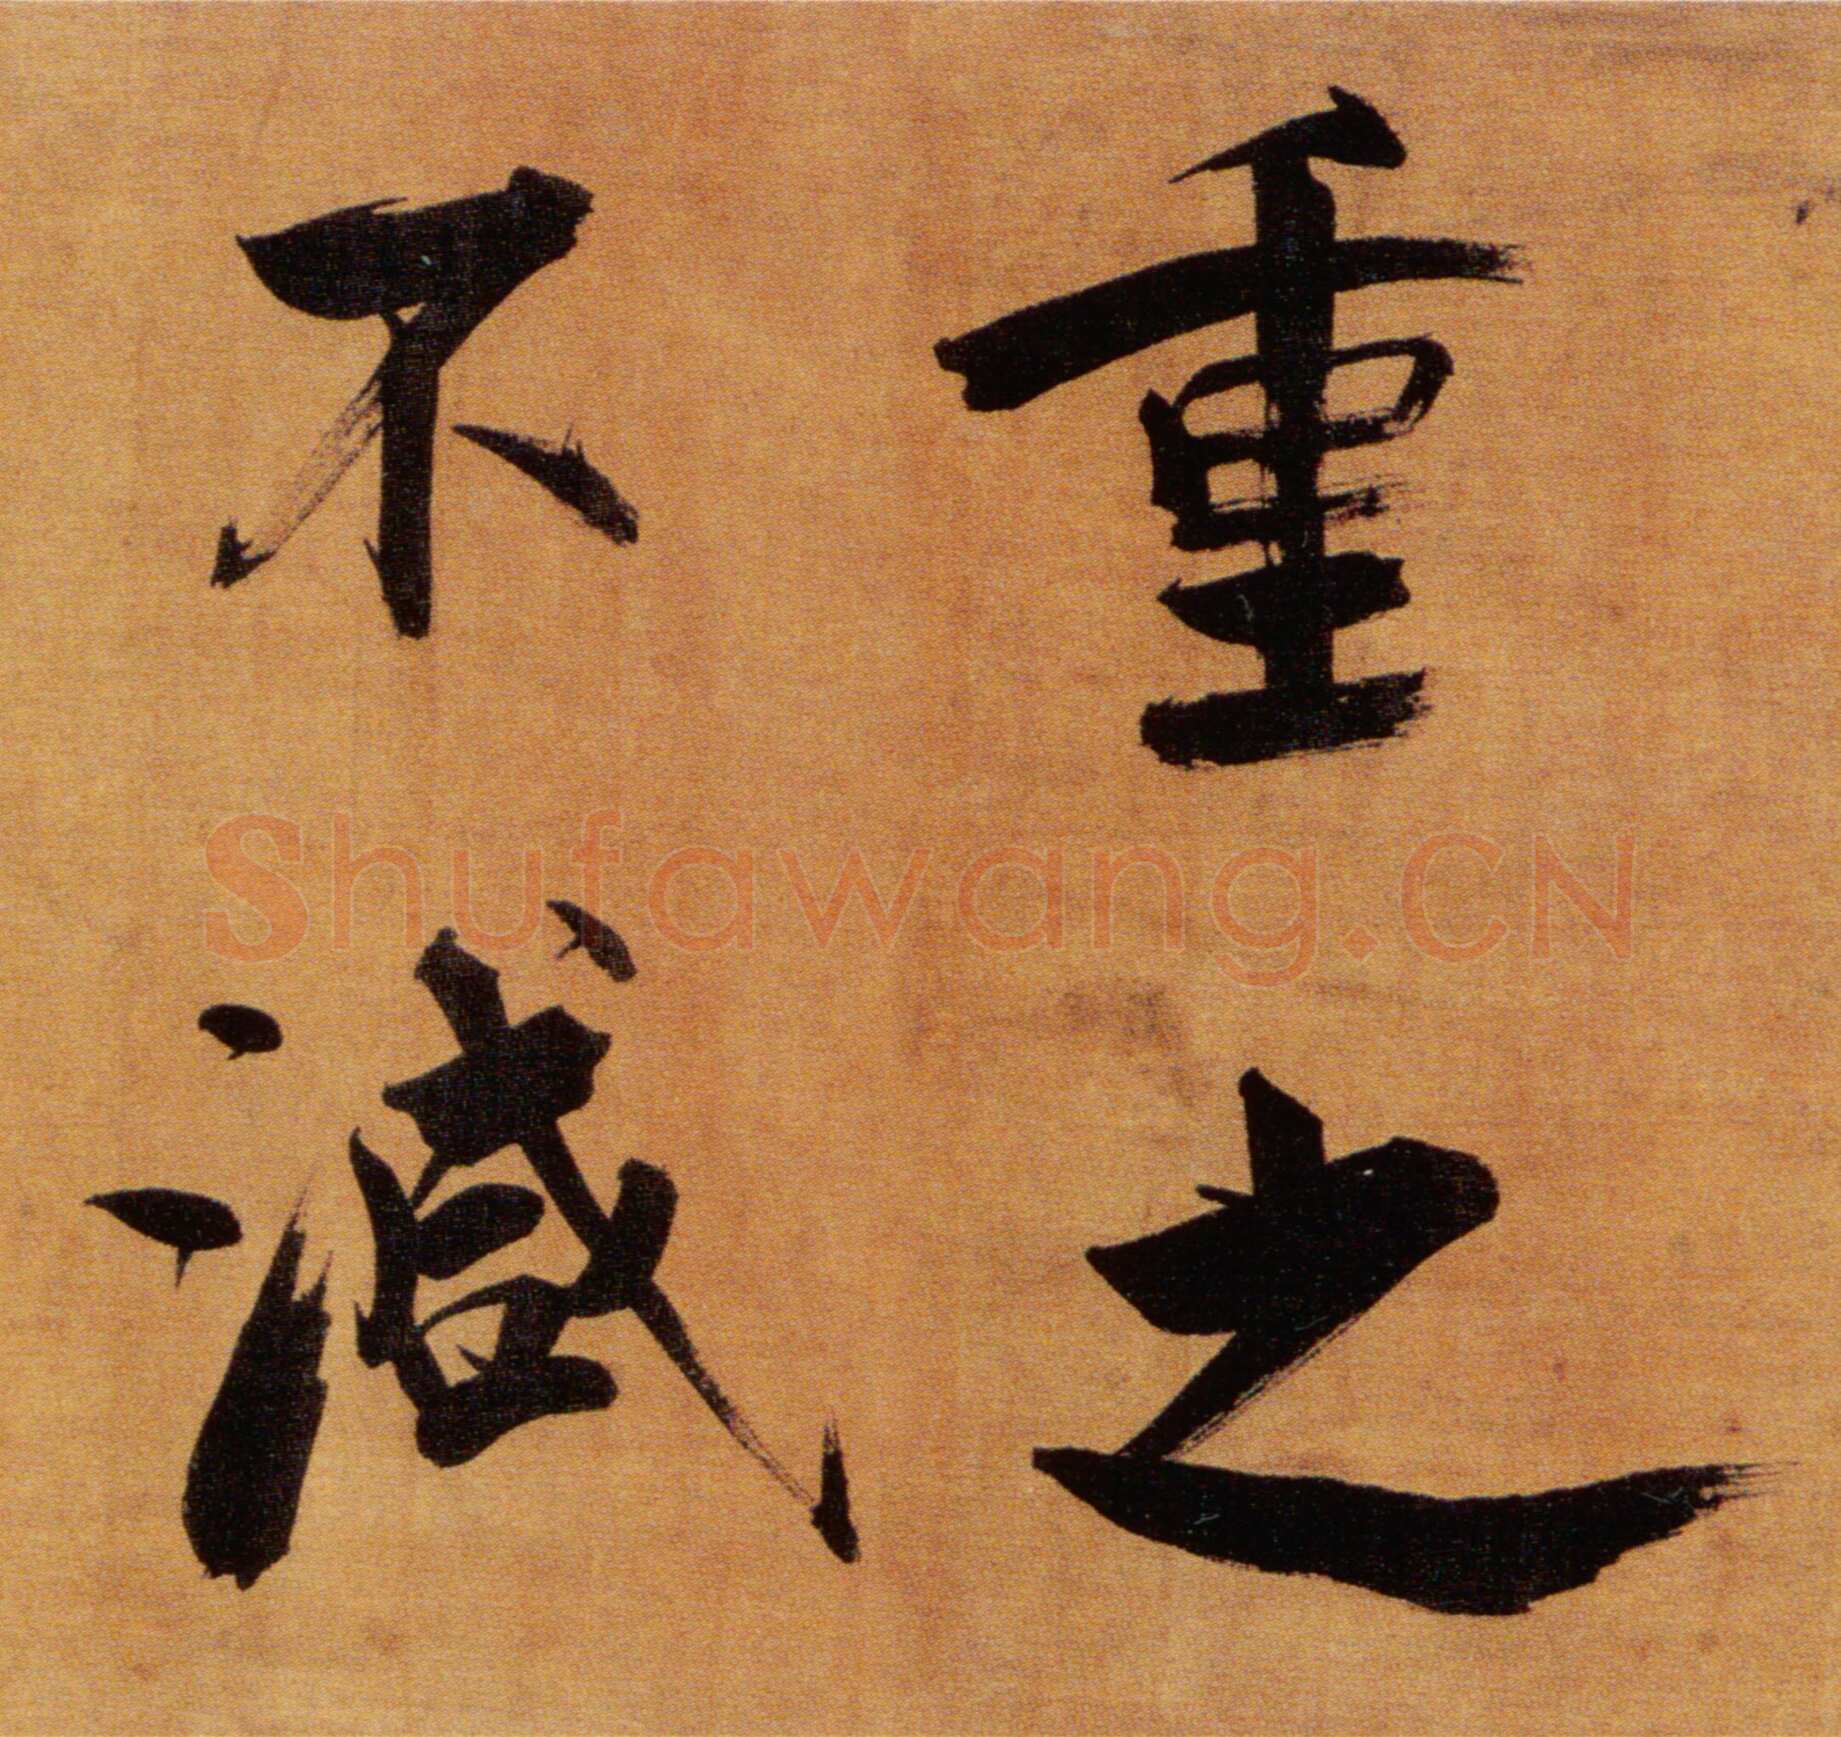 重之
不減
Shufawang.CN